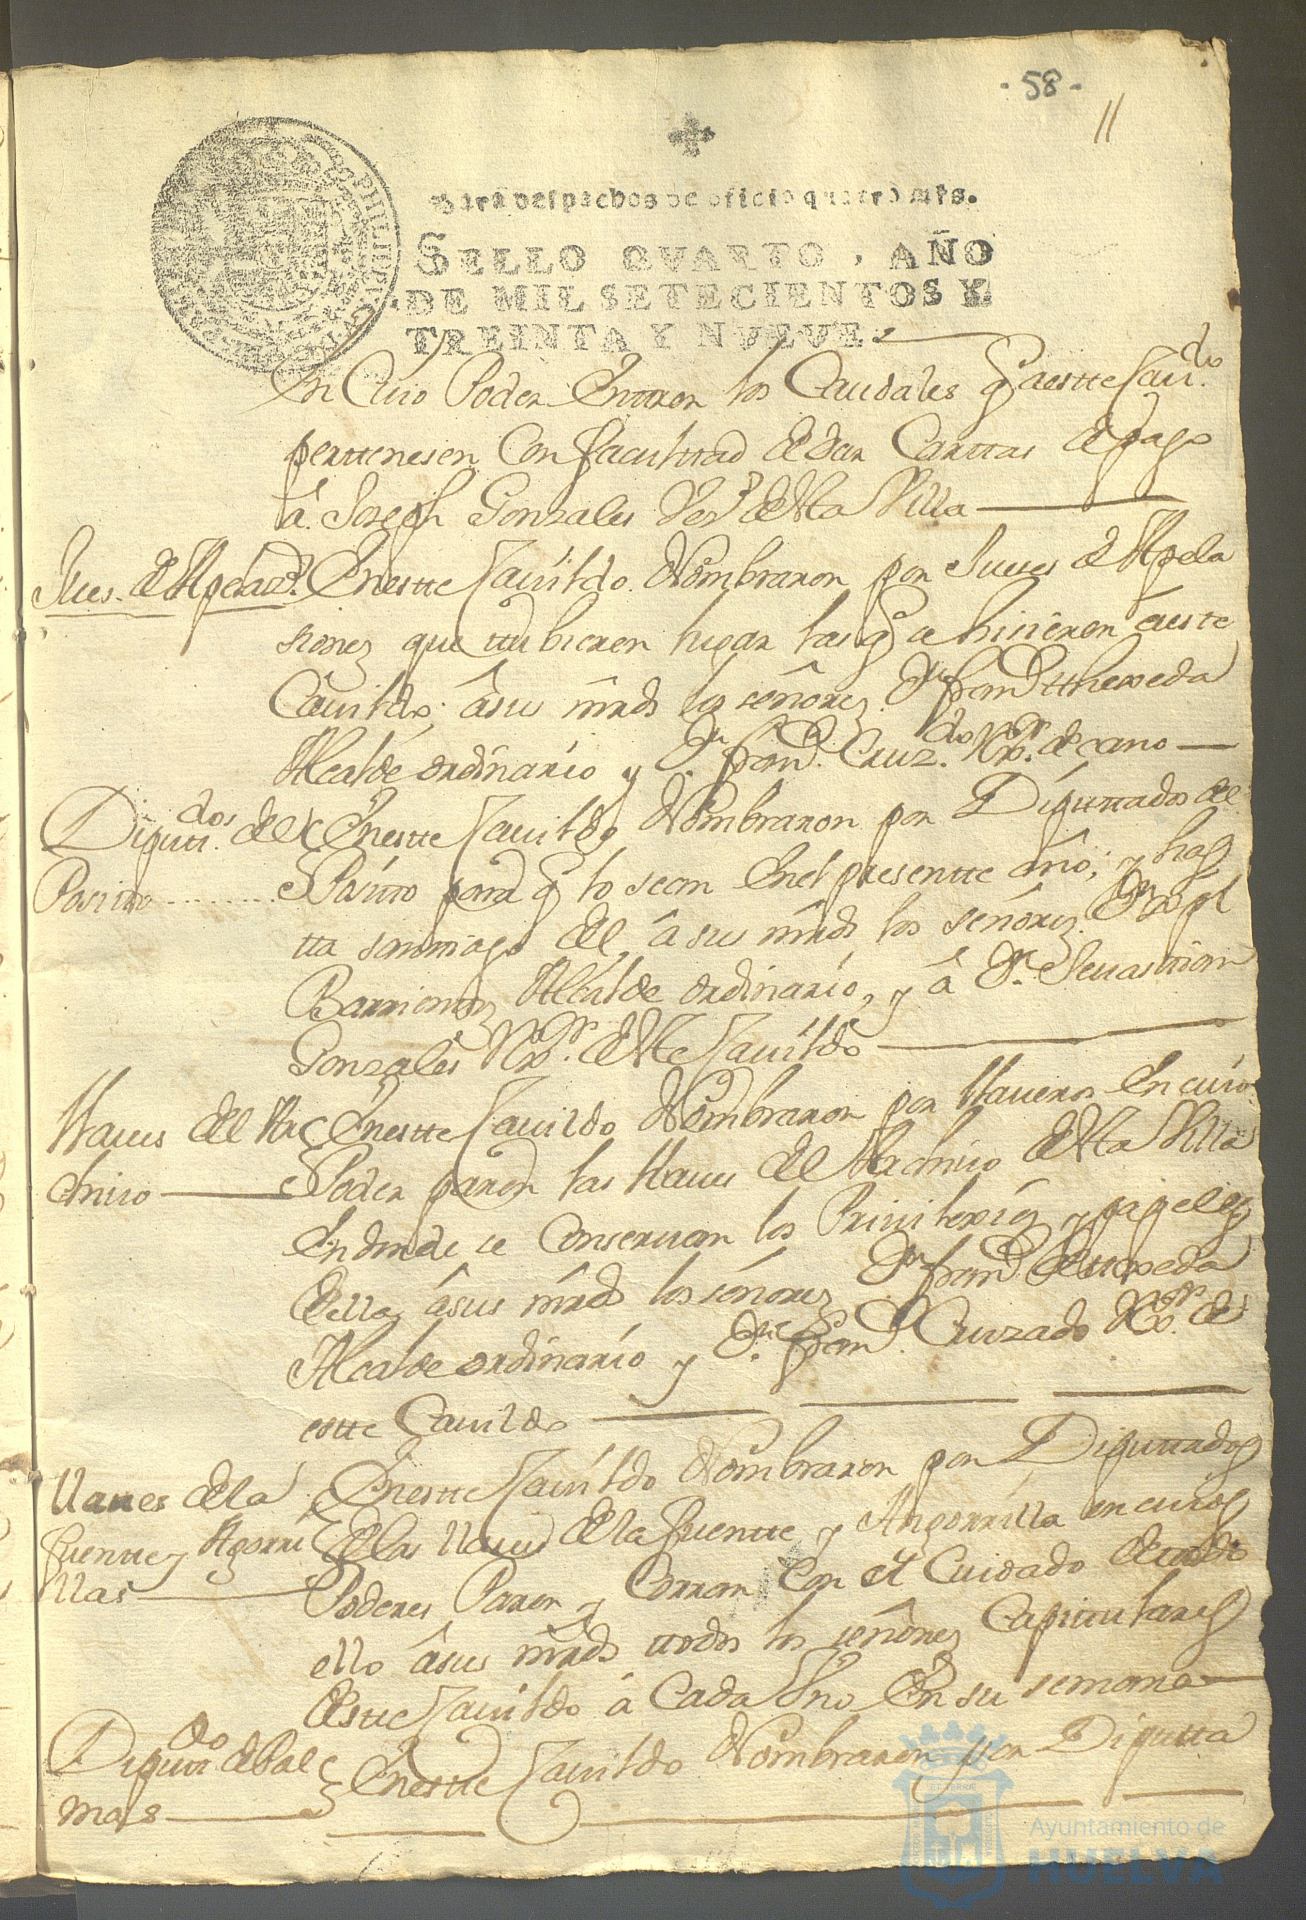 - 58 -
11
Para despachos de oficio quatro mrs.
SELLO QVARTO, AÑO
DE MIL SETECIENTOS Y
TREINTA Y NUEVE.
En Cuio Poder Entren los Caudales q aestte Cavdo.
perttenesen Con faculttad de dar Carttas de pago
â Joseph Gonzales Vezo de stta Villa
Jues. de Apelaz.
En estte Cavildo Nombraron por Jueses de Apela
siones que ttubieren lugar las q se hisieren â este
Cavildo, âsus mrds los señores Dn. Franco
Alcalde ordinario y Dn. Franco. Cruzdo. Rexor. decano
Diputtdos. del
Positto
En estte Cavildo Nombraron por Diputtados del
Positto para q lo sean En el presentte año, y has
tta Santtiago del, â sus mrds los señores Dn.
Barrienttos Alcalde ordinario, y â Dn. Sevasttian
Gonzales Rexor. de stte Cavildo
Llaves del Ar
chivo
En estte Cavildo Nombraron por llaveros En cuio
Poder paren las llaves del Archivo de stta Villa
En donde se Conservan los Privilexios y papeles
della, âsus mrds los señores Dn. Franco
Alcalde ordinario y Dn. Franco. Cruzado Rexor. de
estte Cavildo
Llaves de la
fuentte y Agorri
llas
En estte Cavildo Nombraron por Diputtados
de las llaves de la fuentte y Angorrilla en cuios
Poderes Paren y Corran Con el Cuidado de ttodo
ello âsus mrds ttodos los señores Capittulares
destte Cavildo â Cada Uno En su semana
Diputtdo de Pal
mas
En estte Cavildo Nombraron por Diputta
Ayuntamiento de
HUELVA